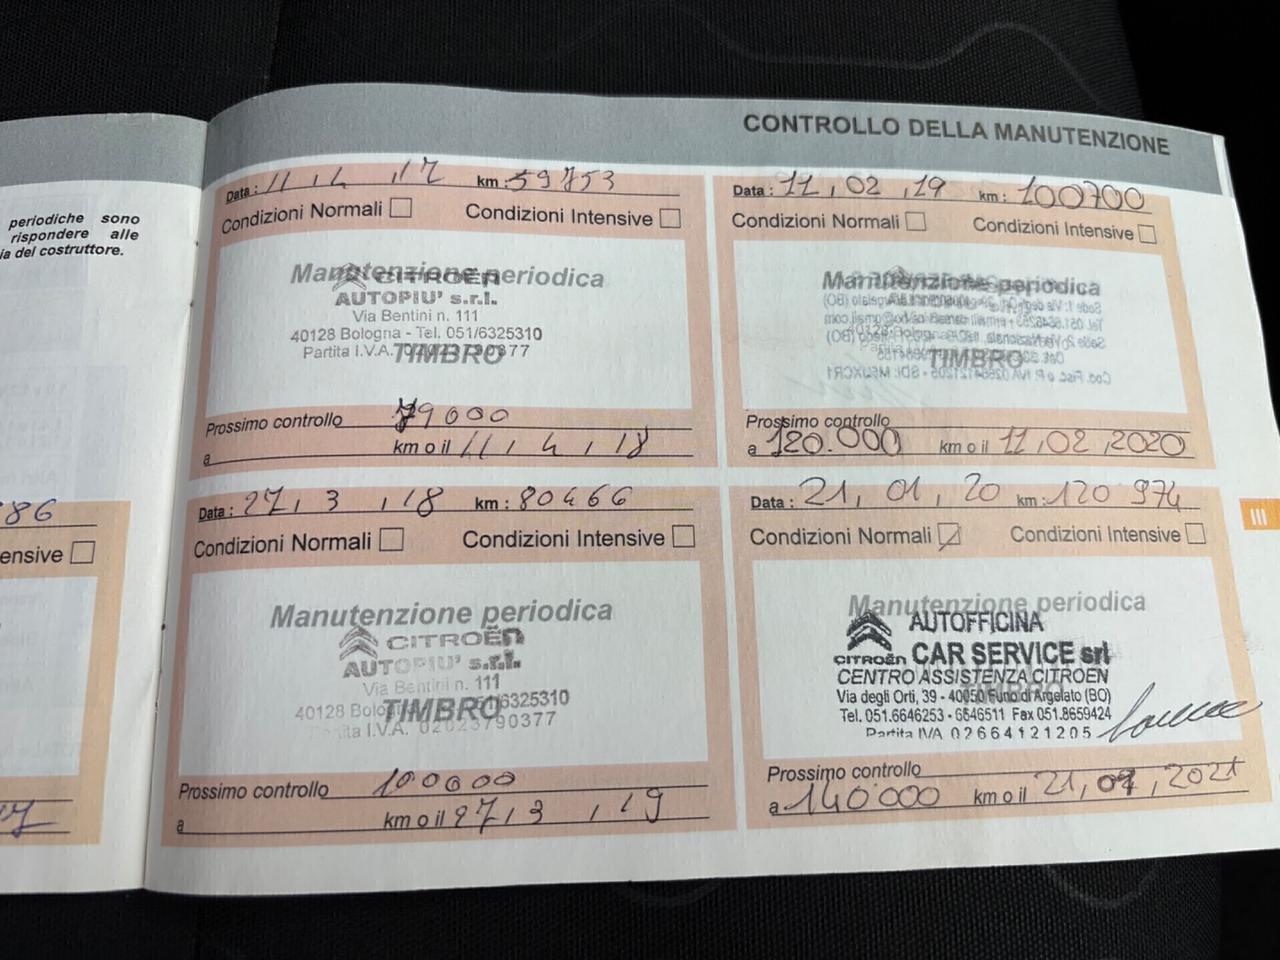 CONTROLLO DELLA MANUTENZIONE
periodiche sono
rispondere alle
ia del costruttore.
86
ensive
Data : 11 / 4 / 17 km : 59753
Condizioni Normali Condizioni Intensive
Manutenzione periodica
CITROËN
AUTOPIU' s.r.l.
Via Bentini n. 111
40128 Bologna - Tel. 051/6325310
Partita I.V.A. 02023790377
TIMBRO
Prossimo controllo 79000
a km o il 11 / 4 / 18
Data : 27 / 3 / 18 km : 80466
Condizioni Normali Condizioni Intensive
Manutenzione periodica
CITROËN
AUTOPIU' s.r.l.
Via Bentini n. 111
40128 Bolog 51/6325310
ta I.V.A. 02023790377
TIMBRO
Prossimo controllo 100000
a km o il 27 / 3 / 19
Data : 11 , 02 , 19 km : 100700
Condizioni Normali Condizioni Intensive
Manutenzione periodica
TIMBRO
Prossimo controllo
a 120.000 km o il 11 , 02 , 2020
Data : 21 , 01 , 20 km : 120 974
Condizioni Normali Condizioni Intensive
Manutenzione periodica
AUTOFFICINA
CITROËN CAR SERVICE srl
CENTRO ASSISTENZA CITROËN
Via degli Orti, 39 - 40050 Funo di Argelato (BO)
Tel. 051.6646253 - 6646511 Fax 051.8659424
Partita IVA 02664121205
TIMBRO
Prossimo controllo
a 140000 km o il 21 , 01 , 2021
III